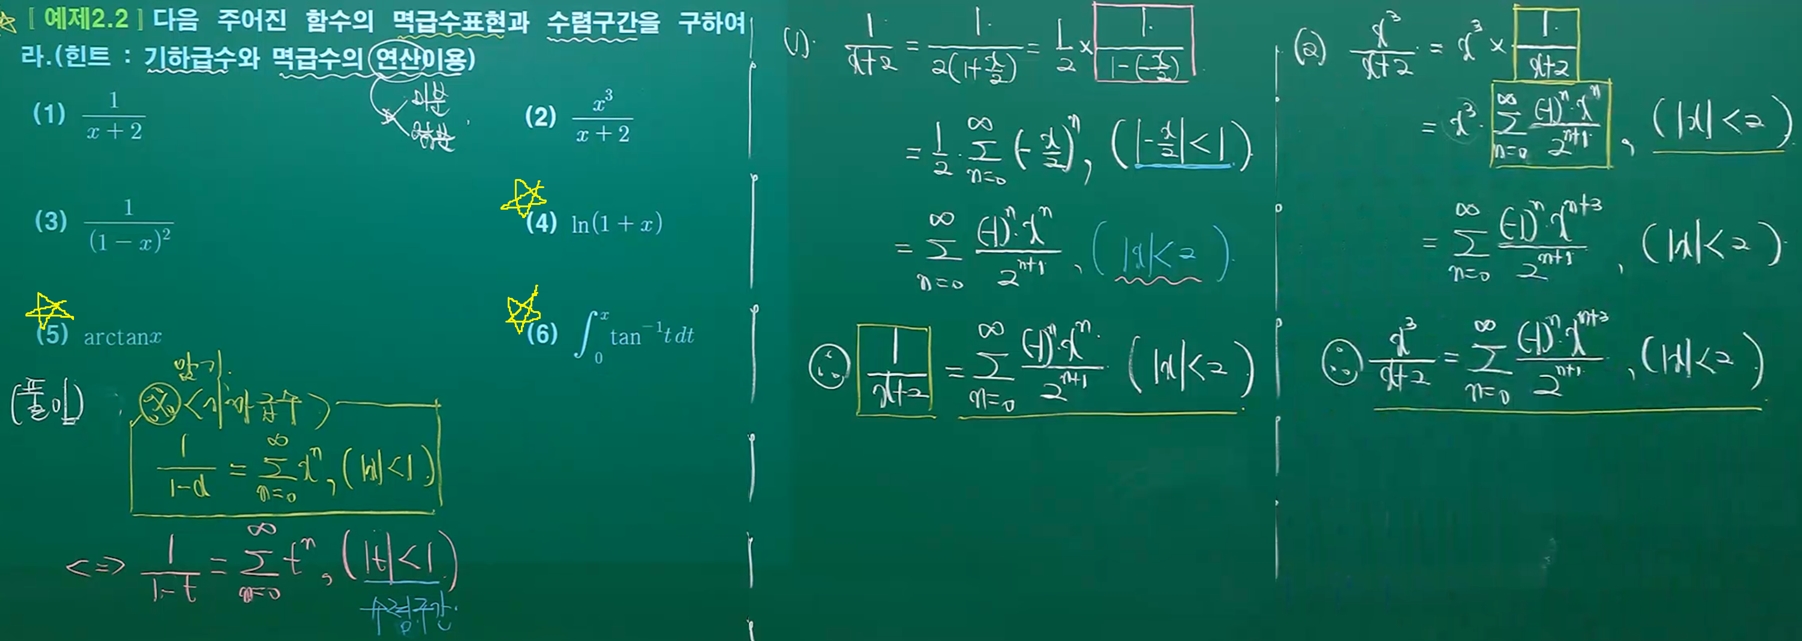 [예제2.2] 다음 주어진 함수의 멱급수표현과 수렴구간을 구하여
라.(힌트 : 기하급수와 멱급수의 연산이용)
미분
적분
(1) 1/(x+2)
(2) x³/(x+2)
(3) 1/(1-x)²
(4) ln(1+x)
(5) arctanx
(6) ∫₀ˣ tan⁻¹t dt
(풀이)
암기
※ <기하급수>
1/(1-x) = ∑_{n=0}^{∞} xⁿ, (|x|<1)
<=> 1/(1-t) = ∑_{n=0}^{∞} tⁿ, (|t|<1)
수렴구간
(1). 1/(x+2) = 1/(2(1+x/2)) = 1/2 × 1/(1-(-x/2))
= 1/2 · ∑_{n=0}^{∞} (-x/2)ⁿ, (|-x/2|<1)
= ∑_{n=0}^{∞} (-1)ⁿ·xⁿ/2ⁿ⁺¹, (|x|<2)
∴ 1/(x+2) = ∑_{n=0}^{∞} (-1)ⁿ·xⁿ/2ⁿ⁺¹ (|x|<2)
(2) x³/(x+2) = x³ × 1/(x+2)
= x³· ∑_{n=0}^{∞} (-1)ⁿ·xⁿ/2ⁿ⁺¹, (|x|<2)
= ∑_{n=0}^{∞} (-1)ⁿ·xⁿ⁺³/2ⁿ⁺¹, (|x|<2)
∴ x³/(x+2) = ∑_{n=0}^{∞} (-1)ⁿ·xⁿ⁺³/2ⁿ⁺¹, (|x|<2)